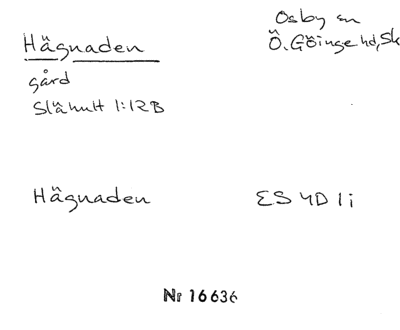 Osby sn
Hägnaden
Ö. Göinge hd, Sk
gård
Slähult 1:12B
Hägnaden
ES 4D 1i
Nr 16636